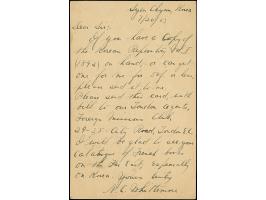 Syen Chyun, Korea
Dear Sir:
If you have a Copy of
the Korean Repository Vol I
(1892) on hand, or can get
one for me for 50f or less,
please send it to me.
Please send this card, with
bill to our London agents,
Foreign Missions Club,
29-35 City Road, London E.C.
I will be glad to see your
catalogue of French books
on the Far East, especially
on Korea. Yours truly
N.C. Whittemore